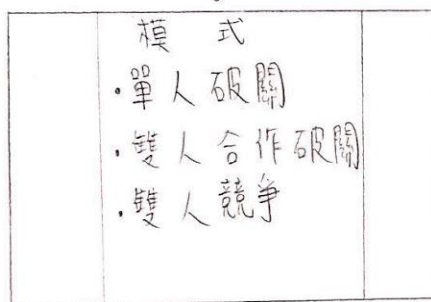 模式
·單人破關
·雙人合作破關
·雙人競爭